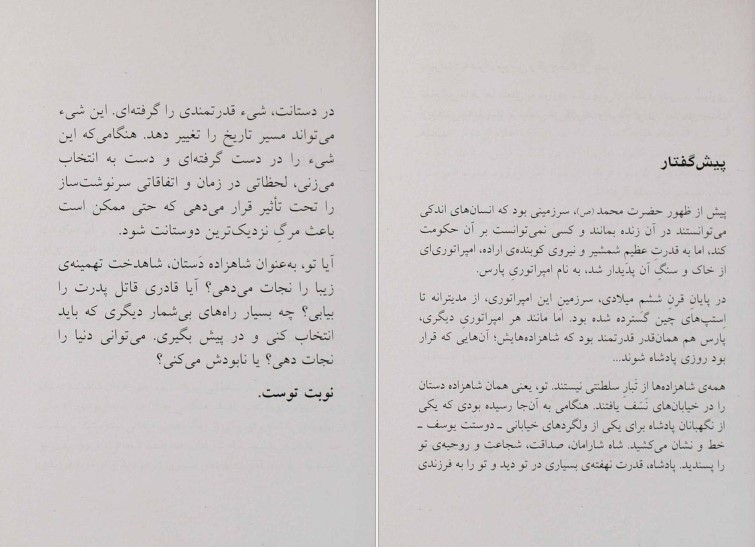 پیش‌گفتار
پیش از ظهور حضرت محمد (ص)، سرزمینی بود که انسان‌های اندکی
می‌توانستند در آن زنده بمانند و کسی نمی‌توانست بر آن حکومت
کند، اما به قدرت عظیم شمشیر و نیروی کوبنده‌ی اراده، امپراتوری‌ای
از خاک و سنگِ آن پدیدار شد، به نام امپراتوریِ پارس.
در پایان قرنِ ششم میلادی، سرزمینِ این امپراتوری، از مدیترانه تا
اِستپ‌های چین گسترده شده بود. اما مانند هر امپراتوریِ دیگری،
پارس هم همان‌قدر قدرتمند بود که شاهزاده‌هایش؛ آن‌هایی که قرار
بود روزی پادشاه شوند...
همه‌ی شاهزاده‌ها از تَبارِ سلطنتی نیستند. تو، یعنی همان شاهزاده دستان
را در خیابان‌های نَسَف یافتند. هنگامی به آن‌جا رسیده بودی که یکی
از نگهبانان پادشاه برای یکی از ولگردهای خیابانی ـ دوستت یوسف ـ
خط و نشان می‌کشید. شاه شارامان، صداقت، شجاعت و روحیه‌ی تو
را پسندید. پادشاه، قدرت نهفته‌ی بسیاری در تو دید و تو را به فرزندی
در دستانت، شیء قدرتمندی را گرفته‌ای. این شیء
می‌تواند مسیر تاریخ را تغییر دهد. هنگامی‌که این
شیء را در دست گرفته‌ای و دست به انتخاب
می‌زنی، لحظاتی در زمان و اتفاقاتی سرنوشت‌ساز
را تحت تأثیر قرار می‌دهی که حتی ممکن است
باعث مرگِ نزدیک‌ترین دوستانت شود.
آیا تو، به‌عنوان شاهزاده دَستان، شاهدخت تهمینه‌ی
زیبا را نجات می‌دهی؟ آیا قادری قاتل پدرت را
بیابی؟ چه بسیار راه‌های بی‌شمار دیگری که باید
انتخاب کنی و در پیش بگیری. می‌توانی دنیا را
نجات دهی؟ یا نابودش می‌کنی؟
نوبت توست.